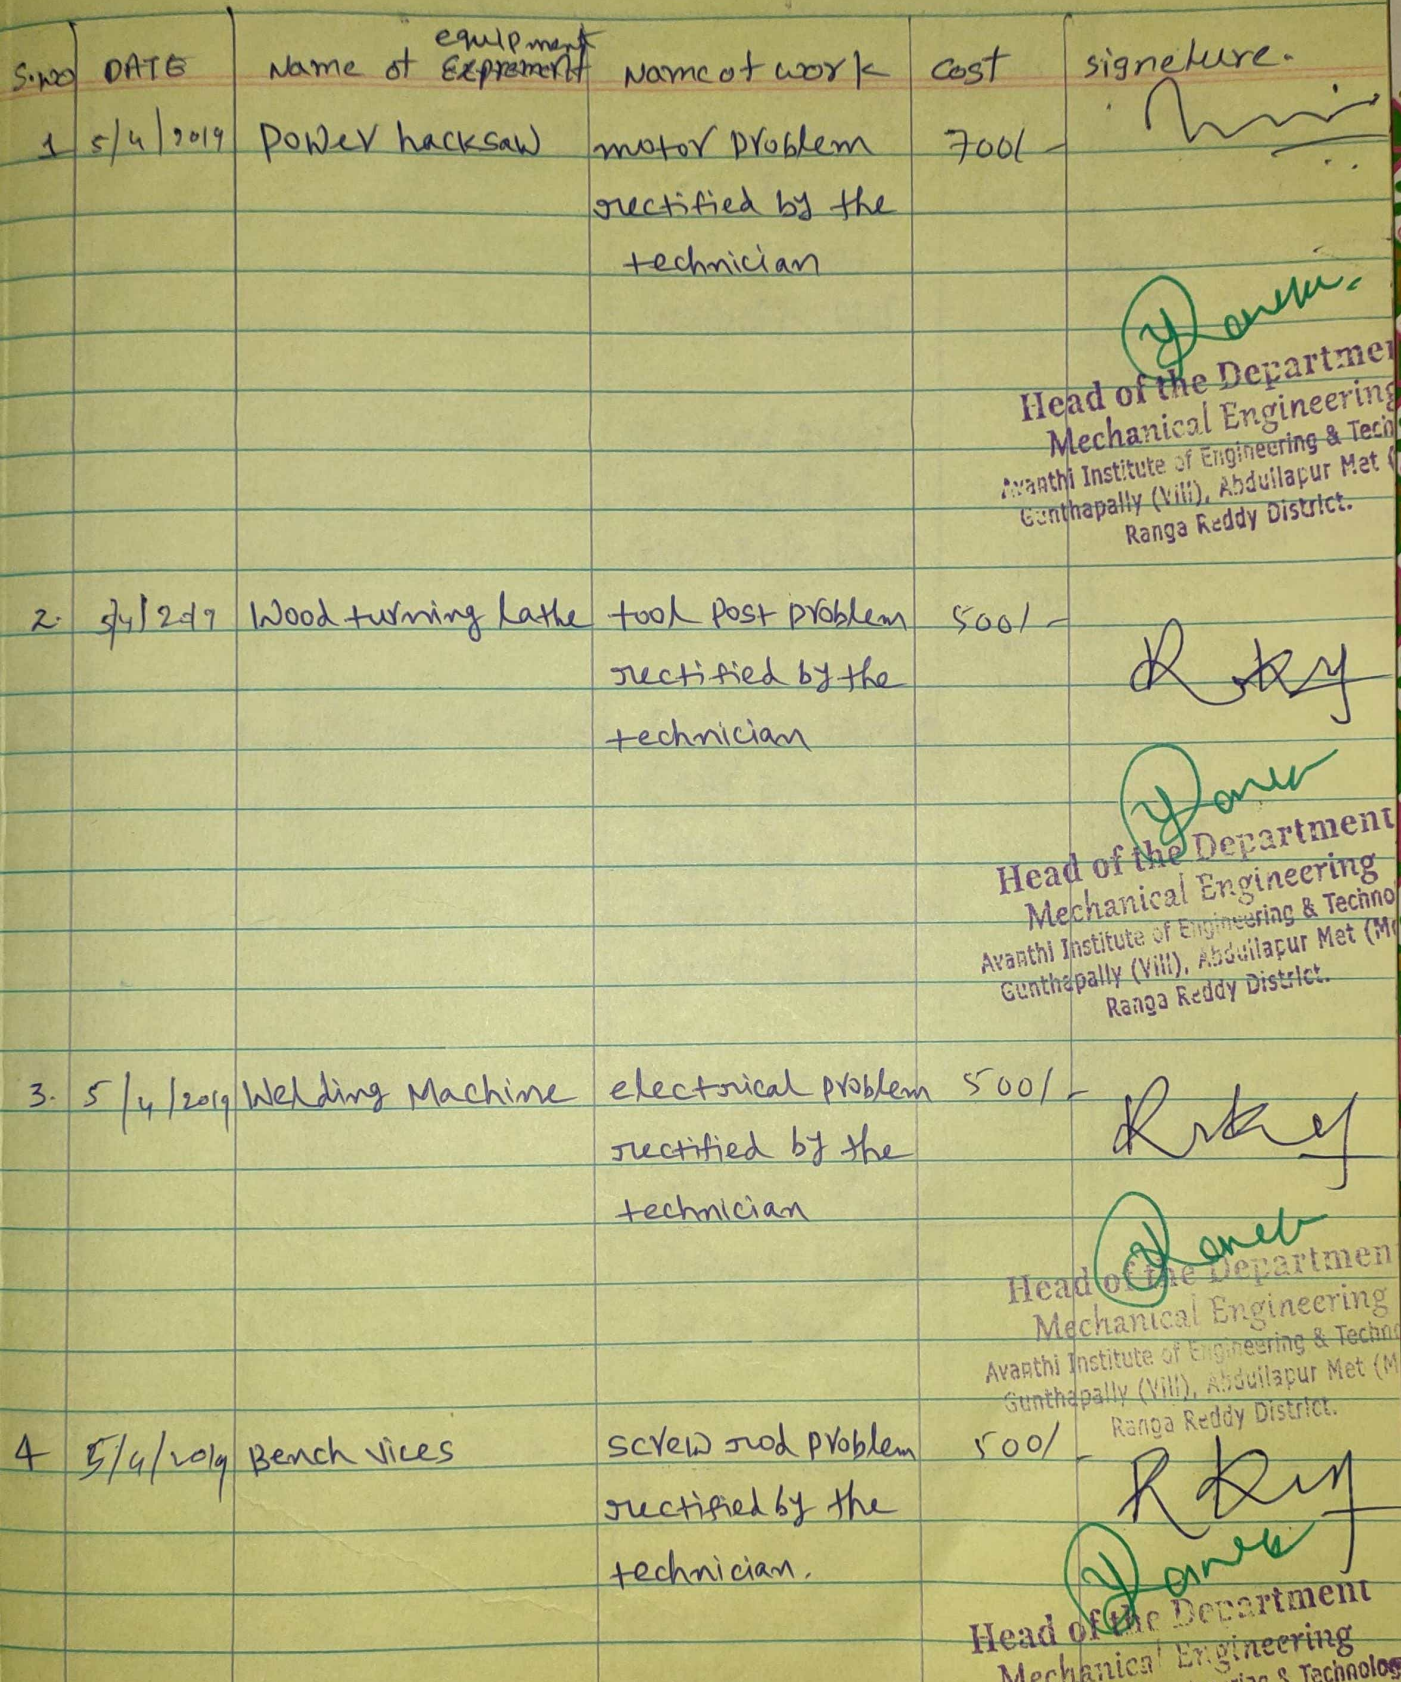 equipment
S.no DATE Name of Exprement Name of work Cost signeture.
1 5/4/2019 Power hacksaw motor problem 700/-
rectified by the
technician
Head of the Departmen
Mechanical Engineering
Avanthi Institute of Engineering & Tech
Gunthapally (Vill), Abdullapur Met (
Ranga Reddy District.
2. 5/4/2019 Wood turning Lathe tool Post problem 500/-
rectified by the
technician
Head of the Department
Mechanical Engineering
Avanthi Institute of Engineering & Techno
Gunthapally (Vill), Abdullapur Met (M
Ranga Reddy District.
3. 5/4/2019 Welding Machine electrical problem 500/-
rectified by the
technician
Head of the Departmen
Mechanical Engineering
Avanthi Institute of Engineering & Techno
Gunthapally (Vill), Abdullapur Met (M
Ranga Reddy District.
4 5/4/2019 Bench vices screw rod problem 500/-
rectified by the
technician.
Head of the Department
Mechanical Engineering
& Technolog